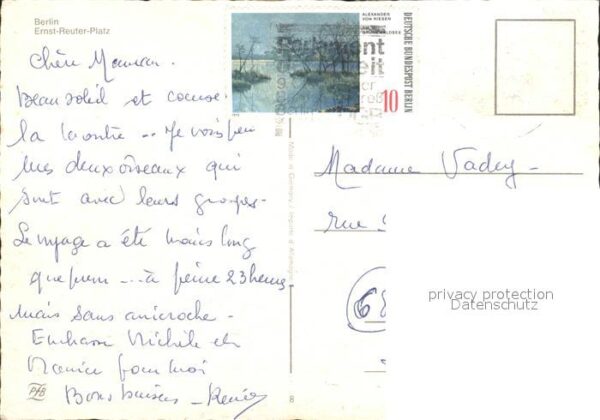 Berlin
Ernst-Reuter-Platz
Chère Maman.
Beau soleil et course
la montre .. Je vois peu
mes deux oiseaux qui
sont avec leurs groupes.
Le voyage a été moins long
que prévu ... à peine 23 heures
mais sans anicroche.
Embrasse Michèle et
Maurice pour moi
Bons baisers - Renée
PfB
ALEXANDER
VON RIESEN
GRUNEWALDSEE
DEUTSCHE BUNDESPOST BERLIN
10
Madame Vadey
rue
(68
8
privacy protection
Datenschutz